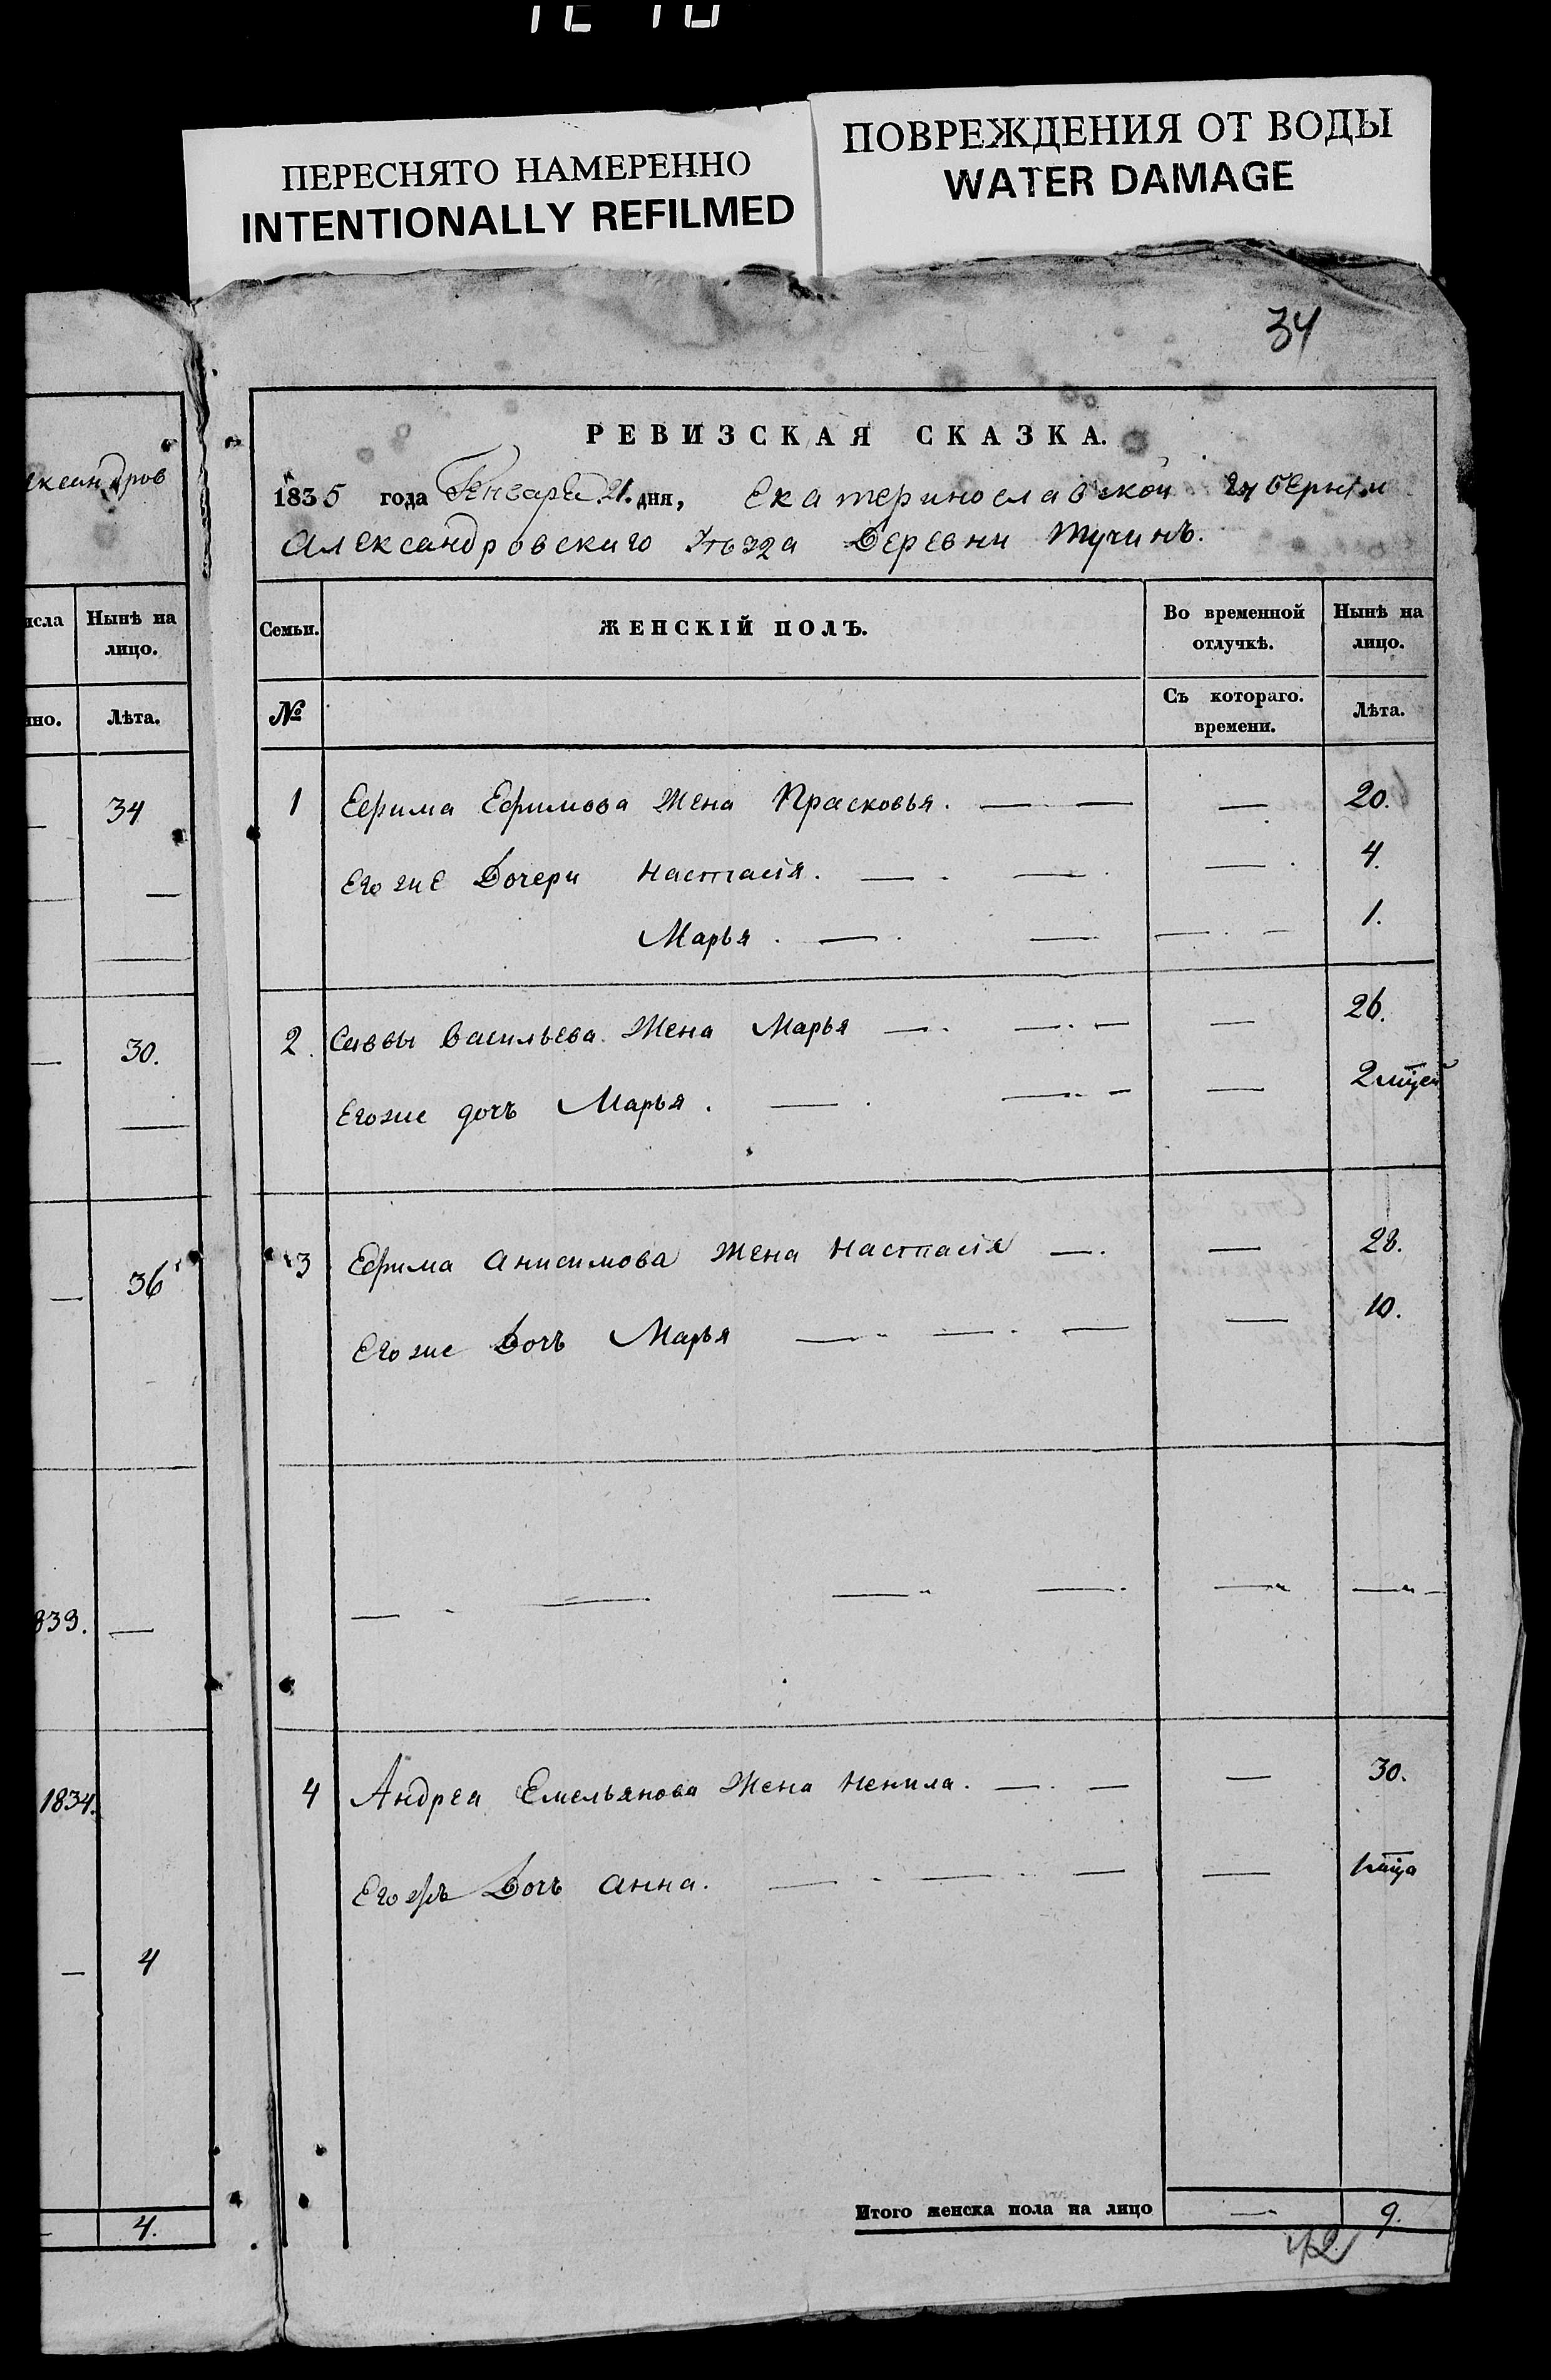 ПЕРЕСНЯТО НАМЕРЕННО
INTENTIONALLY REFILMED
ПОВРЕЖДЕНИЯ ОТ ВОДЫ
WATER DAMAGE
34
ксандров
исла Нынѣ на лицо.
Лѣта.
34
30.
36
1834.
4
4.
РЕВИЗСКАЯ СКАЗКА.
1835 года Генваря 21. дня, Екатеринославской губерніи
Александровскаго Уѣзда Деревни Тучинъ.
Семьи. ЖЕНСКІЙ ПОЛЪ. Во временной отлучкѣ. Нынѣ на лицо.
№ Съ котораго. времени. Лѣта.
1 Ефима Ефимова Жена Прасковья. — — — 20.
Его же Дочери Настасія. — — — 4.
Марья. — — — 1.
2. Саввы Васильева Жена Марья — — — 26.
Его же дочъ Марья. — — — 2 мцей
3 Ефима Анисимова Жена Настасія — — 28.
Его же Дочъ Марья — — — — 10.
4 Андрея Емельянова Жена Ненила. — — — 30.
Егожъ Дочъ Анна. — — — —
Итого женска пола на лицо — 9.
42